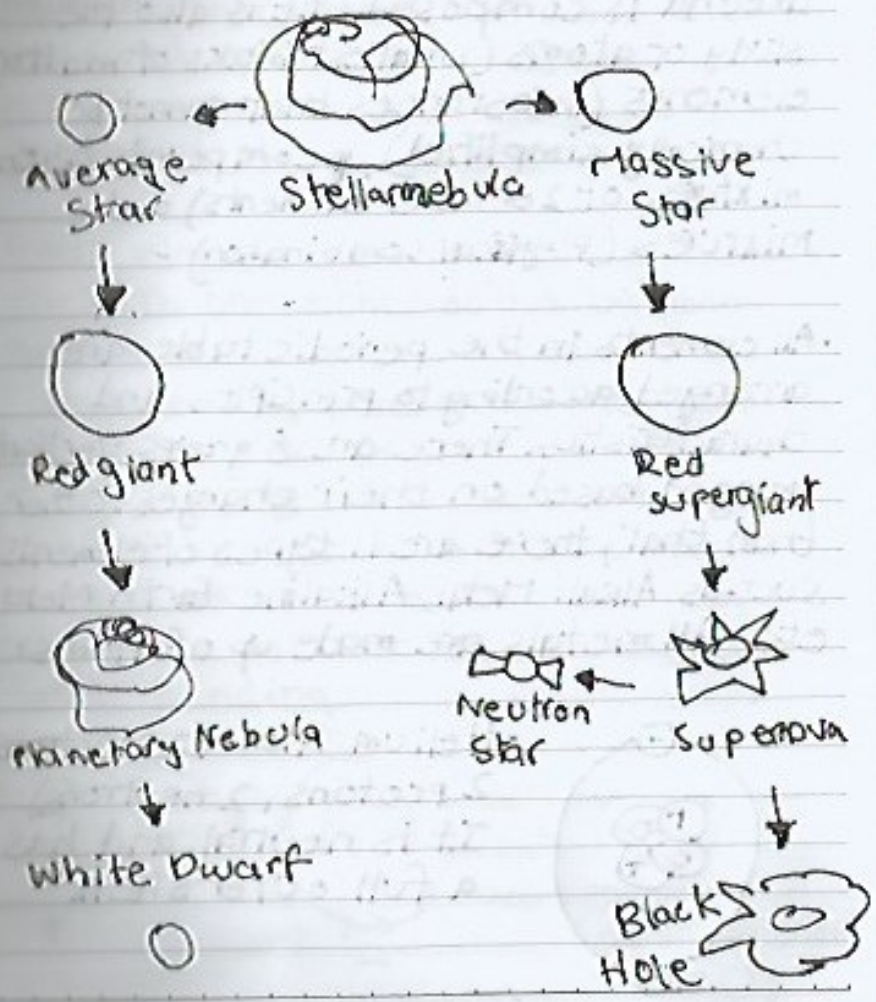 Average
Star
Stellarnebula
Massive
Star
Red giant
Red
supergiant
Planetary Nebula
Neutron
Star
Supernova
White Dwarf
Black
Hole